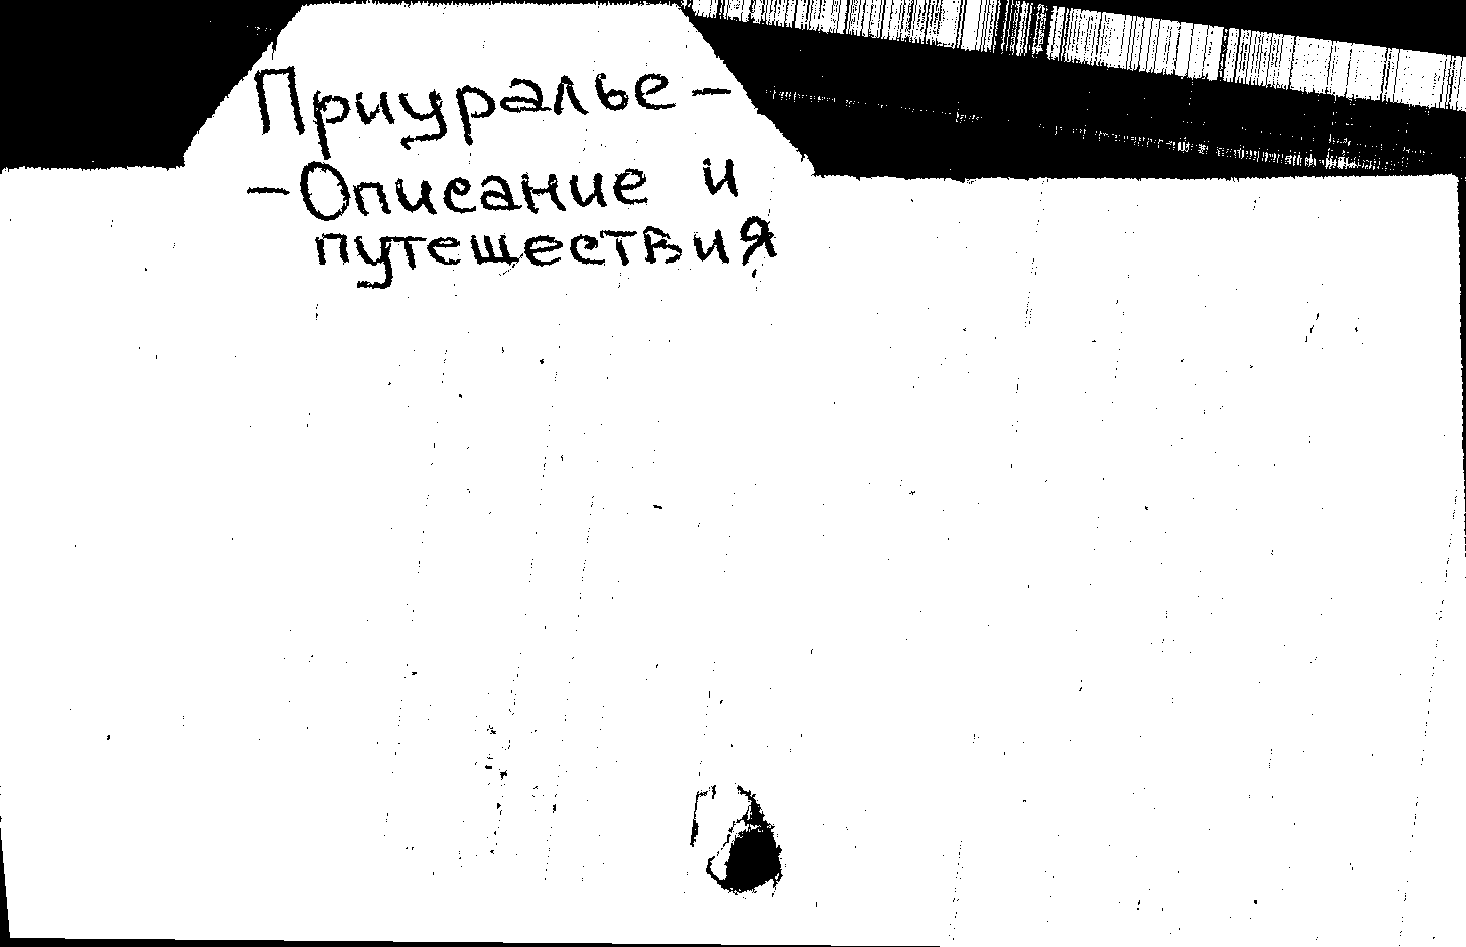 Приуралье –
– Описание и
путешествия